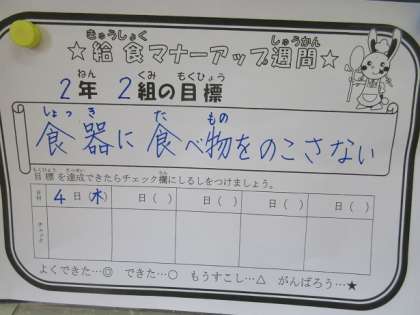 きゅうしょく しゅうかん
★給食マナーアップ週間★
ねん くみ もくひょう
2年 2組の目標
しょっき た もの
食器に食べ物をのこさない
もくひょう たっせい らん
目標を達成できたらチェック欄にしるしをつけましょう。
日付 4日(水) 日( ) 日( ) 日( ) 日( )
チェック
よくできた…◎ できた…○ もうすこし…△ がんばろう…★